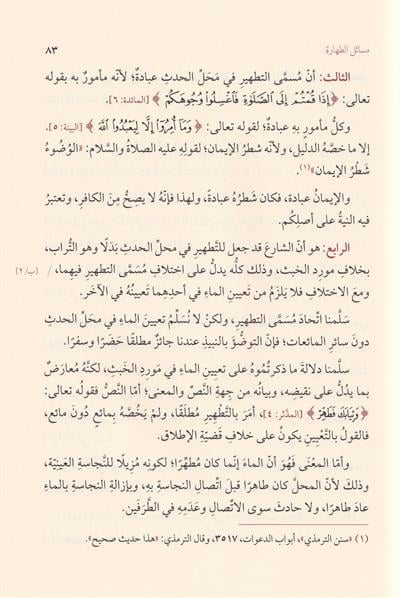 مسائل الطهارة
٨٣
الثالث: أنّ مُسمَّى التطهيرِ في مَحَلِّ الحدثِ عبادةٌ؛ لأنّه مأمورٌ به بقوله
تعالى: ﴿إِذَا قُمْتُمْ إِلَى الصَّلَوٰةِ فَاغْسِلُوا وُجُوهَكُمْ﴾ [المائدة: ٦].
وكلُّ مأمورٍ بهِ عبادةٌ؛ لقوله تعالى: ﴿وَمَا أُمِرُوا إِلَّا لِيَعْبُدُوا اللَّهَ﴾ [البينة: ٥].
إلا ما خصَّهُ الدليل، ولأنّه شطرُ الإيمان؛ لقولِهِ عليه الصلاةُ والسَّلام: «الوُضُوءُ
شَطْرُ الإيمان»(١).
والإيمانُ عبادة، فكان شَطرُهُ عبادةً، ولهذا فإنّهُ لا يصِحُّ مِنَ الكافرِ، وتعتبرُ
فيه النيةُ على أصلِكُم.
الرابع: هو أنّ الشارعَ قد جعل للتَّطهيرِ في محلِّ الحدثِ بَدَلًا وهو التُّراب،
بخلافِ موردِ الخبث، وذلك كلُّه يدلُّ على اختلافِ مُسَمَّى التطهيرِ فيهما، / [٢/ب]
ومعَ الاختلافِ فلا يَلزَمُ من تَعيينِ الماءِ في أحدِهِما تَعيينُهُ في الآخَر.
سَلَّمنا اتّحادَ مُسمَّى التطهيرِ، ولكنْ لا نُسلِّمُ تعيينَ الماءِ في مَحَلِّ الحدثِ
دونَ سائرِ المائعات؛ فإنّ التوضُّؤَ بالنبيذِ عندنا جائزٌ مطلقًا حَضَرًا وسفرًا.
سلَّمنا دلالةَ ما ذكرتُمُوهُ على تعيينِ الماءِ في مَورِدِ الخَبثِ، لكنَّهُ مُعارَضٌ
بما يدُلُّ على نقيضِه، وبيانُه من جهةِ النَّصِّ والمعنى؛ أمّا النَّصُّ فقولُه تعالى:
﴿وَثِيَابَكَ فَطَهِّرْ﴾ [المدَّثر: ٤]، أمَرَ بالتَّطْهيرِ مُطلَقًا، ولمْ يَخُصَّهُ بِمائعٍ دُونَ مائع،
فالقولُ بالتَّعْيينِ يكونُ على خلافِ قَضيّةِ الإطلاق.
وأمّا المعْنَى فَهُوَ أنّ الماءَ إنّما كان مُطهِّرًا؛ لكونِهِ مُزيلًا للنَّجاسةِ العَينيّة،
وذلك لأنّ المحلَّ كان طاهرًا قبلَ اتِّصالِ النجاسةِ بهِ، وبإزالةِ النجاسةِ بالماءِ
عادَ طاهرًا، ولا حادثَ سوى الاتّصالِ وعَدَمِهِ في الطَّرفَين.
(١) «سنن الترمذي»، أبواب الدعوات، ٣٥١٧، وقال الترمذي: «هذا حديث صحيح».